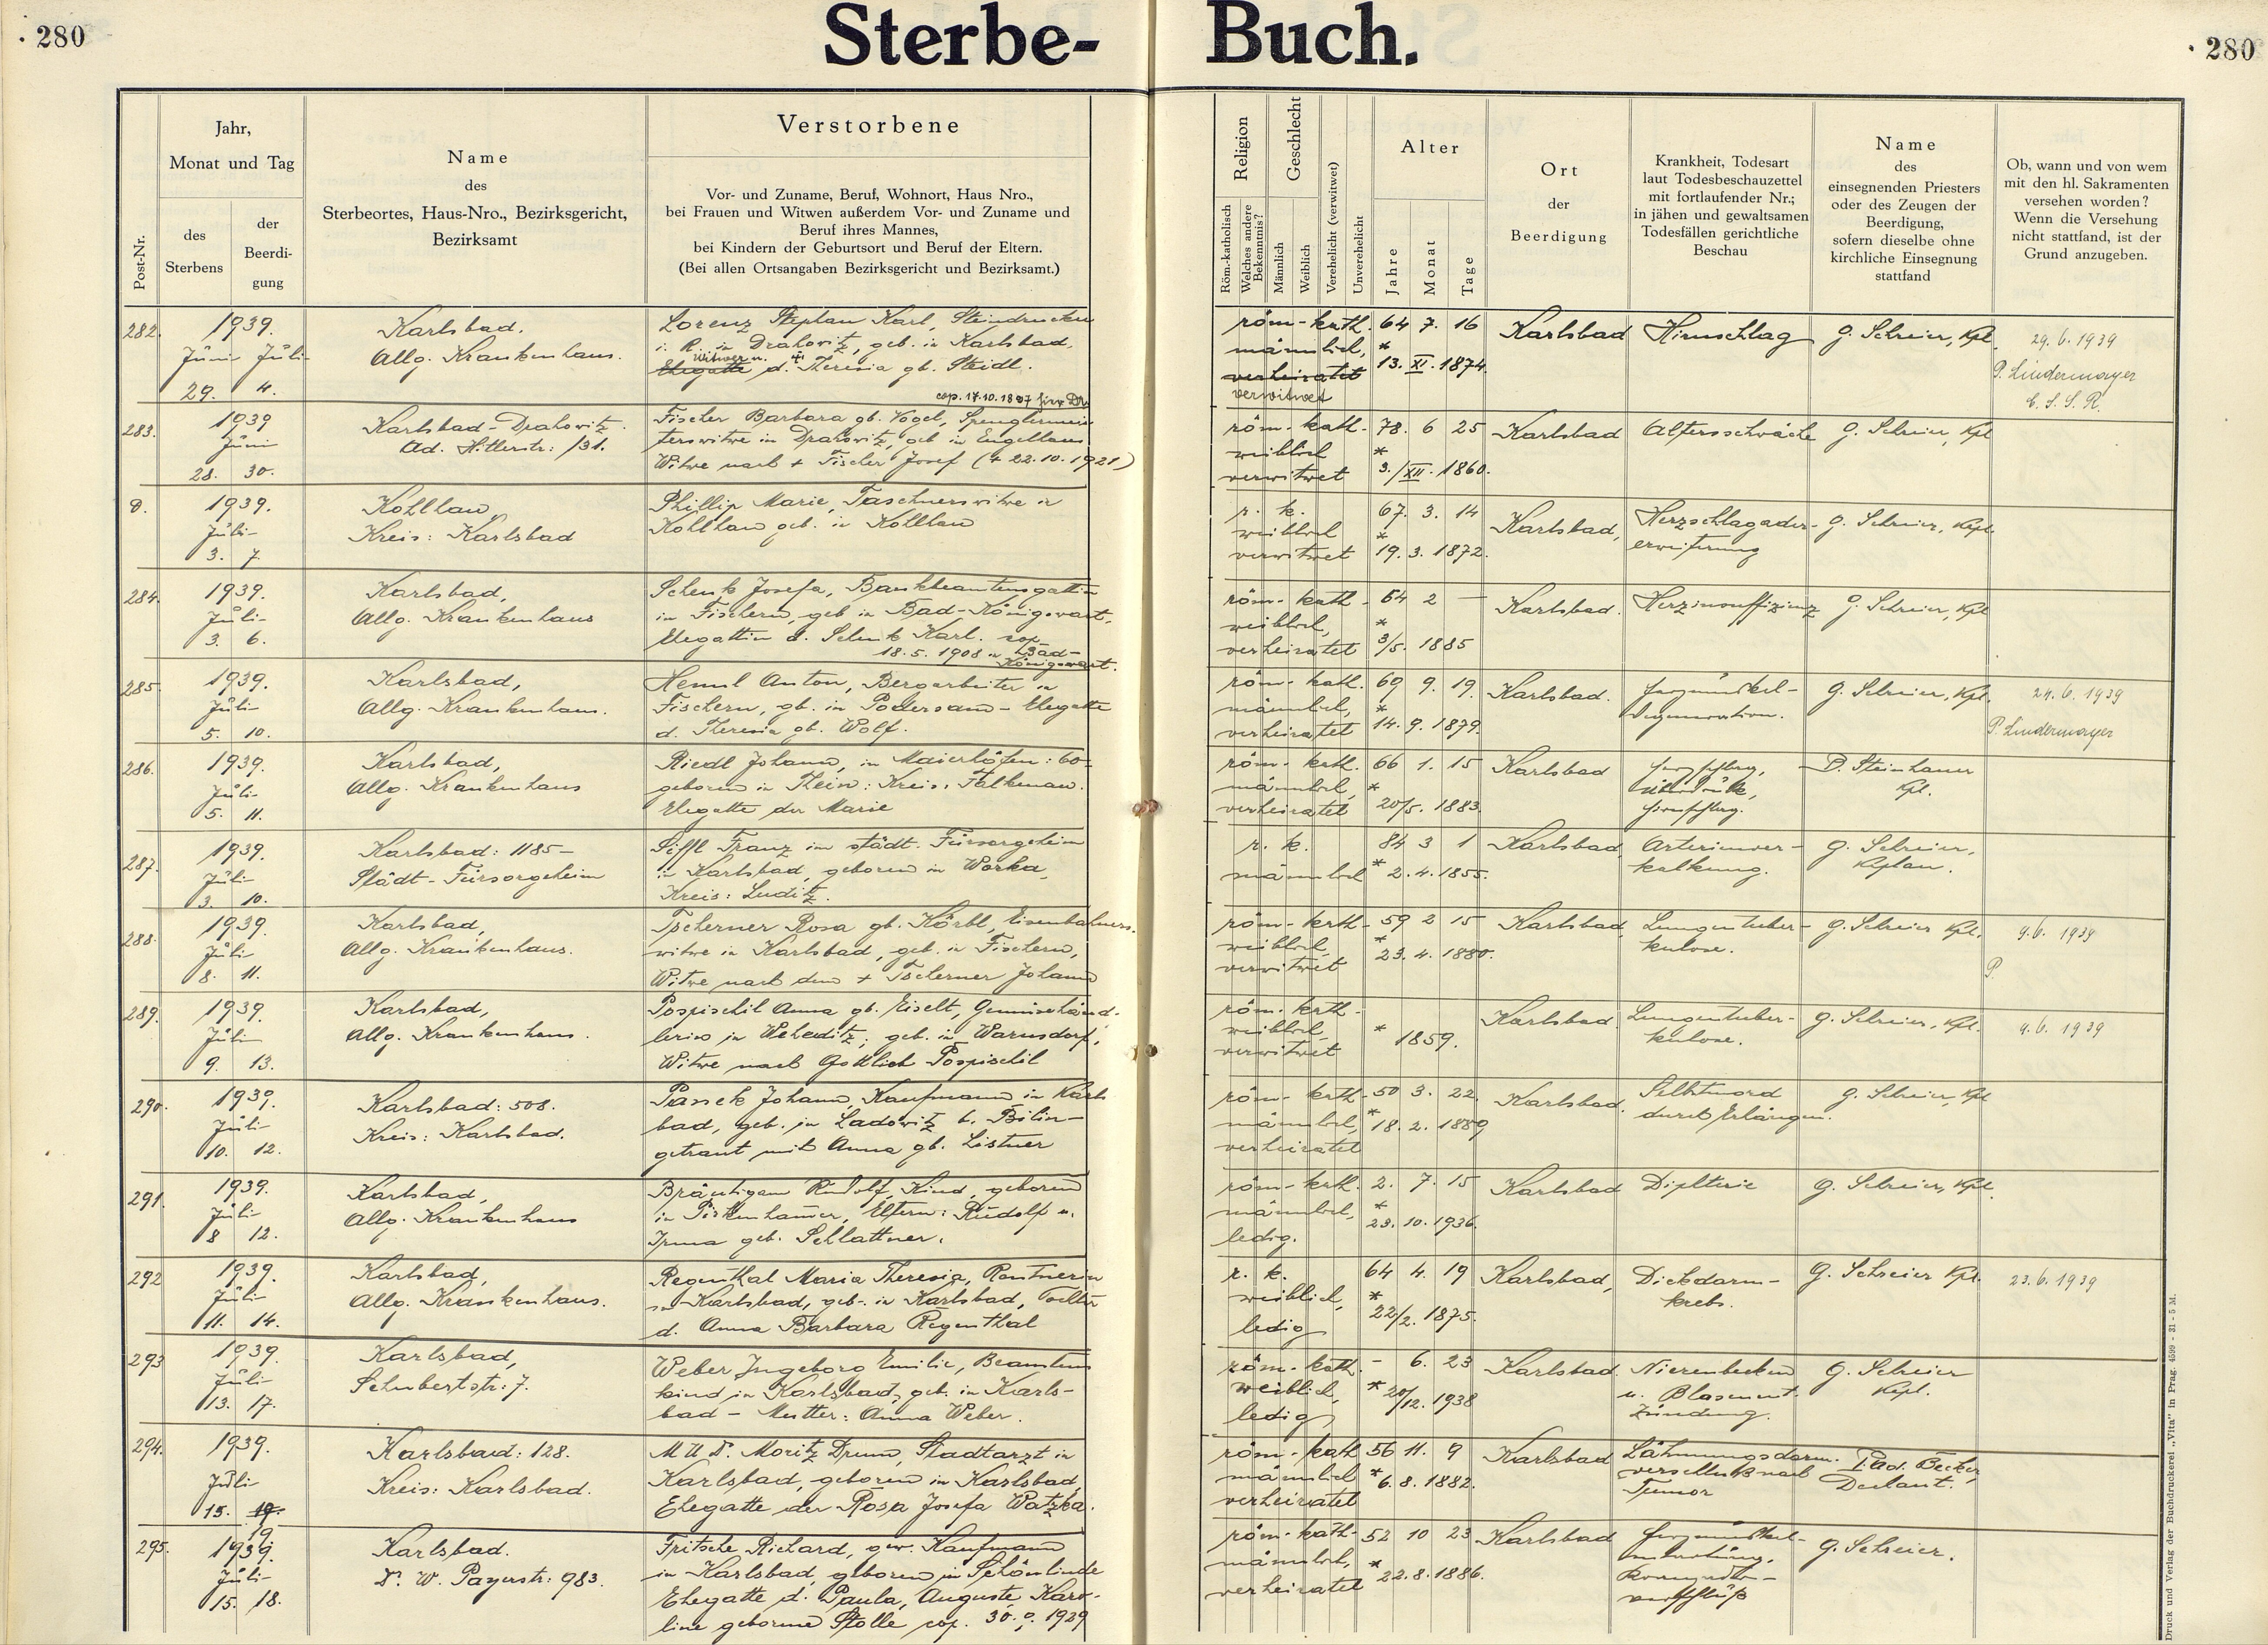 280
Sterbe-
Buch.
280
Post-Nr.
Jahr,
Monat und Tag
des
Sterbens
der
Beerdi-
gung
Name
des
Sterbeortes, Haus-Nro., Bezirksgericht,
Bezirksamt
Verstorbene
Vor- und Zuname, Beruf, Wohnort, Haus Nro.,
bei Frauen und Witwen außerdem Vor- und Zuname und
Beruf ihres Mannes,
bei Kindern der Geburtsort und Beruf der Eltern.
(Bei allen Ortsangaben Bezirksgericht und Bezirksamt.)
Religion
Röm.-katholisch
Welches andere
Bekenntnis?
Geschlecht
Männlich
Weiblich
Verehelicht (verwitwet)
Unverehelicht
Alter
Jahre
Monat
Tage
Ort
der
Beerdigung
Krankheit, Todesart
laut Todesbeschauzettel
mit fortlaufender Nr.;
in jähen und gewaltsamen
Todesfällen gerichtliche
Beschau
Name
des
einsegnenden Priesters
oder des Zeugen der
Beerdigung,
sofern dieselbe ohne
kirchliche Einsegnung
stattfand
Ob, wann und von wem
mit den hl. Sakramenten
versehen worden?
Wenn die Versehung
nicht stattfand, ist der
Grund anzugeben.
282.
1939.
Juni Juli
29. 4.
Karlsbad.
Allg. Krankenhaus.
Lorenz Stephan Karl, Steindrucker
i. R. in Drahowitz, geb. in Karlsbad,
Witwer n.
Ehegatte d. Theresia gb. Steidl.
cop. 17.10.1897
röm-kath.
männlich,
verheiratet
verwitwet
64 7. 16
* 13. XI. 1874.
Karlsbad
Hirnschlag
G. Schreier, Kpl.
29. 6. 1939
P. Lindermayer
C. S. S. R.
283.
1939
Juni
28. 30.
Karlsbad-Drahowitz
Ad. Hitlerstr: /31.
Fischer Barbara gb. Vogel, Spenglermeis
terswitwe in Drahowitz, geb in Engelhaus
Witwe nach + Fischer Josef (+ 22.10.1921)
röm-kath.
weiblich
verwitwet
78. 6 25
* 3./XII. 1860.
Karlsbad
Altersschwäche
G. Schreier, Kpl
8.
1939.
Juli
3. 7.
Kohlhau,
Kreis: Karlsbad
Phillip Marie, Taschnerswitwe in
Kohlhau geb. in Kohlhau
r. k.
weiblich
verwitwet
67. 3. 14
* 19. 3. 1872.
Karlsbad,
Herzschlagader-
erweiterung
G. Schreier, Kpl.
284.
1939.
Juli
3. 6.
Karlsbad,
Allg. Krankenhaus
Schenk Josefa, Bankbeamtensgattin
in Fischern, geb in Bad-Königswart,
Ehegattin d. Schenk Karl. cop
18.5. 1908 in Bad-
Königswart.
röm-kath.
weiblich,
verheiratet
54 2 —
* 3/5. 1885
Karlsbad.
Herzinsuffizienz
G. Schreier, Kpl
285.
1939.
Juli
5. 10.
Karlsbad,
Allg. Krankenhaus.
Heml Anton, Bergarbeiter in
Fischern, gb. in Podersam - Ehegatte
d. Theresia gb. Wolf.
röm-kath.
männlich,
verheiratet
69 9. 19.
* 14. 9. 1879.
Karlsbad.
Herzmuskel-
degeneration.
G. Schreier, Kpl.
24. 6. 1939
P. Lindermayer
286.
1939.
Juli
5. 11.
Karlsbad,
Allg. Krankenhaus
Riedl Johann, in Maierhöfen: 60-
geboren in Thein: Kreis: Falkenau.
Ehegatte der Marie
röm-kath.
männlich,
verheiratet
66 1. 15
* 20/5. 1883.
Karlsbad
D. Steinhauer
Kpl.
287.
1939.
Juli
3. 10.
Karlsbad: 1185-
Städt-Fürsorgeheim
Siffl Franz im städt. Fürsorgeheim
in Karlsbad, geboren in Worka,
Kreis: Luditz.
r. k.
männlich
84 3 1
* 2. 4. 1855.
Karlsbad,
Arterienver-
kalkung.
G. Schreier,
Kplan.
288.
1939.
Juli
8. 11.
Karlsbad,
Allg. Krankenhaus.
Tscherner Rosa gb. Körbl, Eisenbahners.
witwe in Karlsbad, geb. in Fischern,
Witwe nach dem + Tscherner Johann
röm-kath-
weiblich,
verwitwet
59 2 15
* 23. 4. 1880.
Karlsbad,
Lungentuber-
kulose.
G. Schreier Kpl.
9. 6. 1939
P.
289.
1939.
Juli
9. 13.
Karlsbad,
Allg. Krankenhaus.
Pospischil Anna gb. Eiselt, Gemüsehänd-
lerin in Weheditz, geb. in Warnsdorf,
Witwe nach Gottlieb Pospischil
röm-kath-
weiblich,
verwitwet
* 1859.
Karlsbad.
Lungentuber-
kulose.
G. Schreier, Kpl.
9. 6. 1939
290.
1939.
Juli
10. 12.
Karlsbad: 508.
Kreis: Karlsbad.
Panek Johann, Kaufmann in Karls
bad, geb. in Ladowitz b. Bilin-
getraut mit Anna gb. Listner
röm-kath-
männlich,
verheiratet
50 3. 22.
* 18. 2. 1889
Karlsbad.
Selbstmord
durch Erhängen.
G. Schreier, Kpl
291.
1939.
Juli
8 12.
Karlsbad,
Allg. Krankenhaus
Bräutigam Rudolf, Kind, geboren
in Pirkenhammer, Eltern: Rudolf u.
Irma geb. Schlattner.
röm-kath.
männlich,
ledig.
2. 7. 15
* 23. 10. 1936.
Karlsbad
Diphterie
G. Schreier, Kpl.
292
1939.
Juli
11. 14.
Karlsbad,
Allg. Krankenhaus.
Regenthal Maria Theresia, Rentnerin
in Karlsbad, geb. in Karlsbad, Tochter
d. Anna Barbara Regenthal
r. k.
weiblich,
ledig
64 4. 19
* 22/2. 1875.
Karlsbad,
Dickdarm-
krebs.
G. Schreier Kpl.
23. 6. 1939
293
1939.
Juli
13. 17.
Karlsbad,
Schubertstr: 7.
Weber Ingeborg Emilie, Beamtens
kind in Karlsbad, geb. in Karls-
bad - Mutter: Anna Weber.
röm-kath.
weiblich,
ledig
- 6. 23
* 20/12. 1938
Karlsbad.
Nierenbecken
u. Blasenent-
zündung.
G. Schreier
Kpl.
294.
1939.
Juli
15. 19.
Karlsbad: 128.
Kreis: Karlsbad.
M U Dr. Moritz Drum, Stadtarzt in
Karlsbad, geboren in Karlsbad,
Ehegatte der Rosa Josefa Watzka.
röm-kath
männlich
verheiratet
56 11. 9
* 6. 8. 1882.
Karlsbad
Lähmungsdarm-
verschluß nach
Tumor
P. Ad. Becker,
Dechant.
295.
1939.
Juli
15. 18.
Karlsbad.
Dr. W. Payerstr: 983.
Fritsche Richard, gew. Kaufmann
in Karlsbad, geboren in Schönlinde
Ehegatte d. Paula, Auguste, Karo-
line geborene Stolle cop. 30. 1929
röm-kath-
männlich,
verheiratet
52 10 23
* 22. 8. 1886.
Karlsbad
G. Schreier.
Druck und Verlag der Buchdruckerei „Vita" in Prag. 4599 - 31 - 5 M.